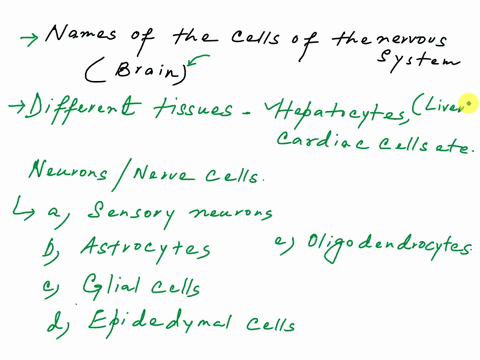 → Names of the cells of the nervous system
(Brain)
→ Different tissues - ✓Hepatocytes, (Liver
Cardiac cells ete.
Neurons/Nerve cells.
↳ a, Sensory neurons
b, Astrocytes e, Oligodendrocytes
c, Glial cells
d, Epidedymal cells